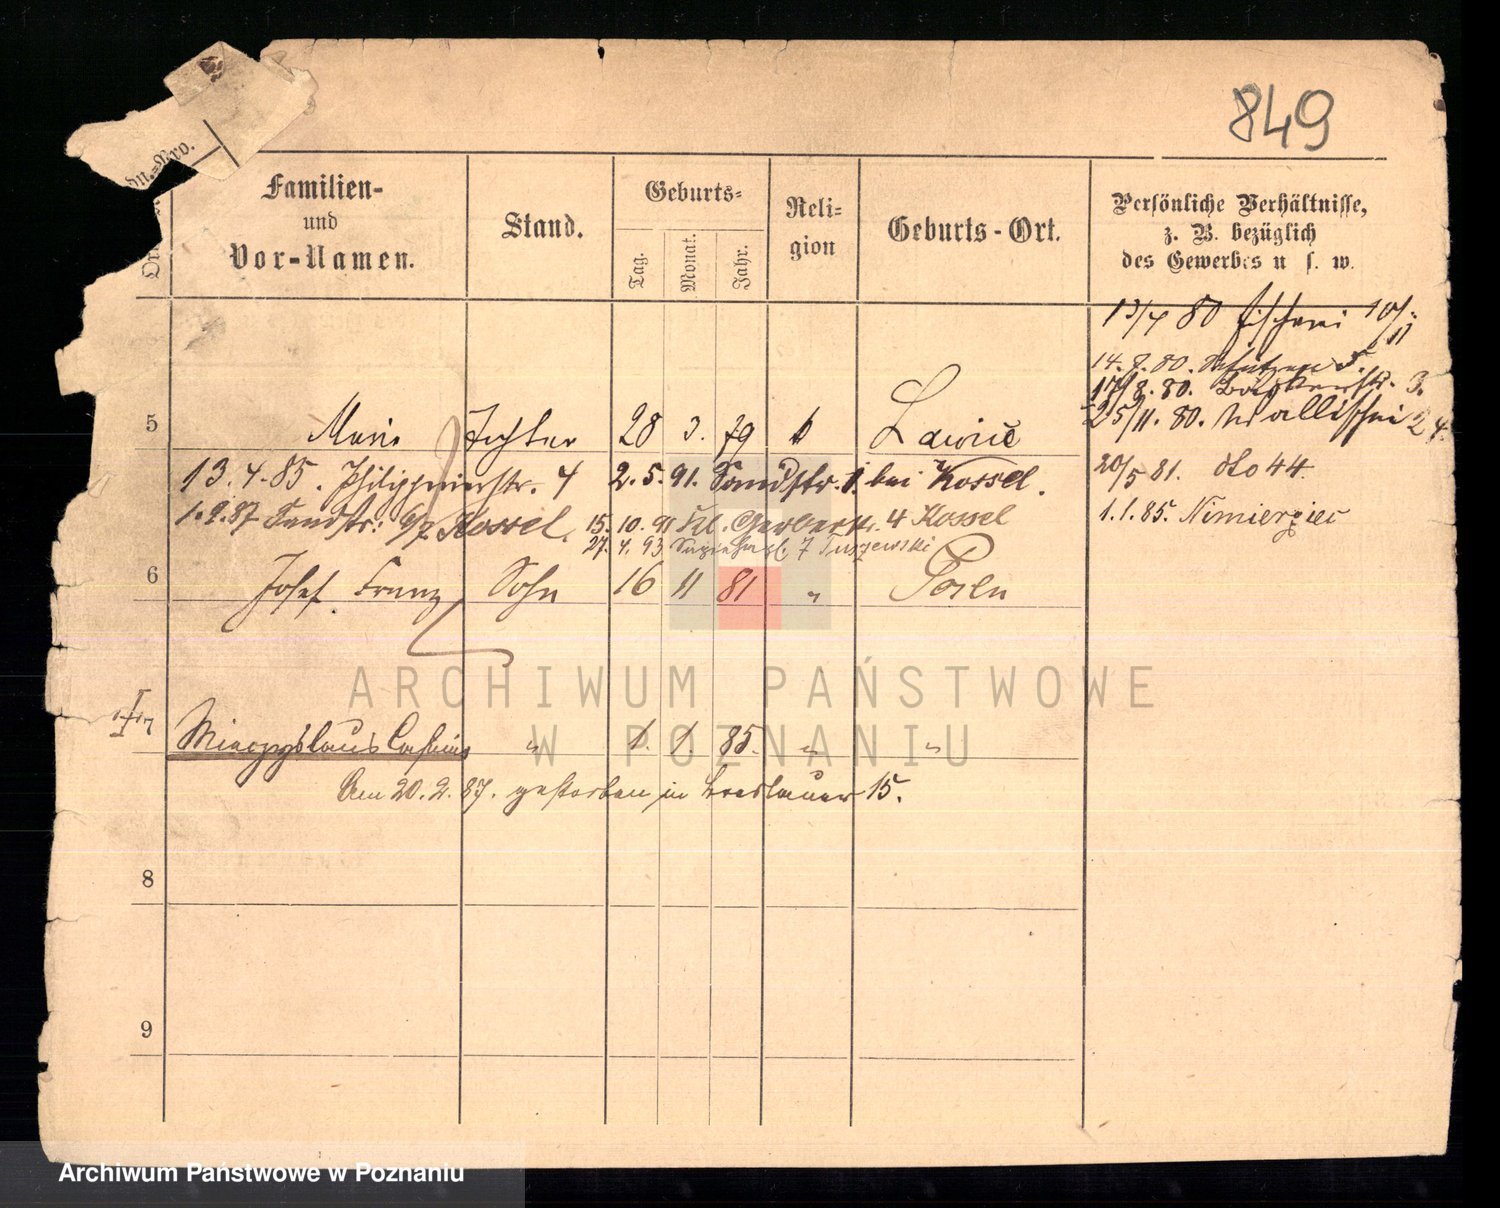 849
Familien-
und
Vor-Namen.
Stand.
Geburts-
Tag.
Monat.
Jahr.
Reli-
gion
Geburts-Ort.
Persönliche Verhältnisse,
z. B. bezüglich
des Gewerbes u s. w.
13/4 80 Fischerei 10/11
14.8.80. Schützen 5.
17/8.80. Bäckerstr. 3.
25/11.80. Wallischei 24.
20/5 81. dto 44.
1.1.85. Nimierziec
5 Marie Tochter 28 3. 79 Lawicc
13.4.85. Philippinerstr. 4 2.5.91. Sandstr. 1. bei Kossel.
1.9.87 Sandstr. Kossel. 15.10.91 Kl. Gerberstr. 4 Kossel
27.4.93 7
6 Josef Franz Sohn 16 11 81 " Posen
Mieczyslaus Casimir " 1. 1. 85. " "
Am 20.2.87. gestorben in Breslauer 15.
8
9
ARCHIWUM PAŃSTWOWE
W POZNANIU
Archiwum Państwowe w Poznaniu